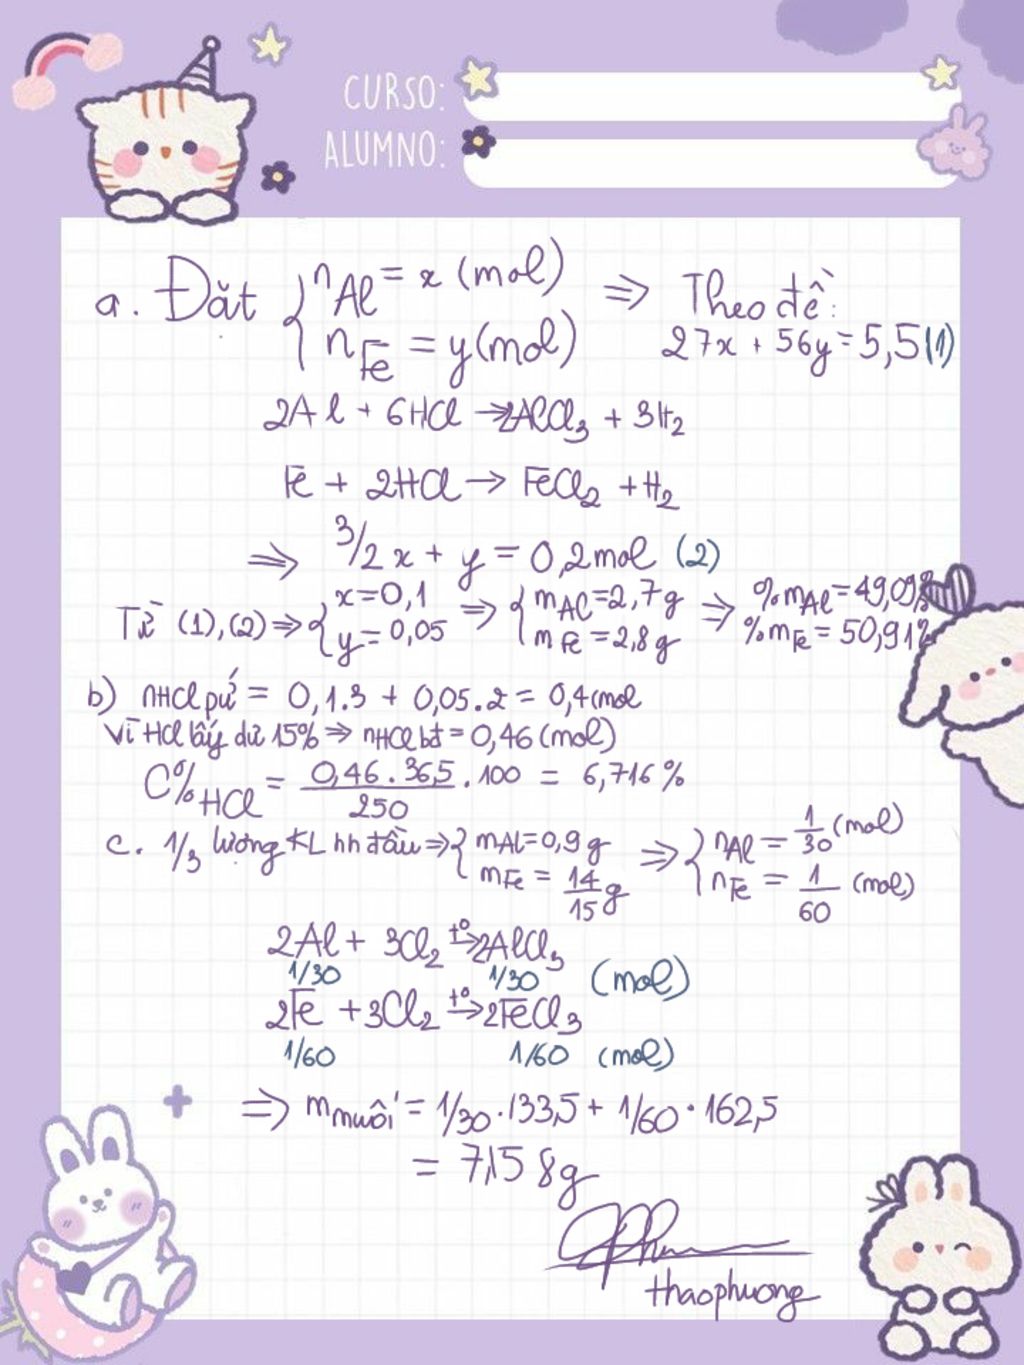 CURSO:
ALUMNO:
a. Đặt { nAl = x (mol) ⇒ Theo đề:
nFe = y (mol) 27x + 56y = 5,5 (1)
2Al + 6HCl → 2AlCl₃ + 3H₂
Fe + 2HCl → FeCl₂ + H₂
⇒ 3/2 x + y = 0,2 mol (2)
Từ (1), (2) ⇒ { x = 0,1 ⇒ { mAl = 2,7 g ⇒ %mAl = 49,09%
y = 0,05 mFe = 2,8 g %mFe = 50,91%
b) nHCl pứ = 0,1.3 + 0,05.2 = 0,4 mol
Vì HCl lấy dư 15% ⇒ nHCl bđ = 0,46 (mol)
C%HCl = 0,46.36,5/250 .100 = 6,716%
c. 1/3 lượng KL hh đầu ⇒ { mAl = 0,9 g ⇒ { nAl = 1/30 (mol)
mFe = 14/15 g nFe = 1/60 (mol)
2Al + 3Cl₂ t°→ 2AlCl₃
1/30 1/30 (mol)
2Fe + 3Cl₂ t°→ 2FeCl₃
1/60 1/60 (mol)
⇒ m muối = 1/30.133,5 + 1/60.162,5
= 7,158g
thaophuong